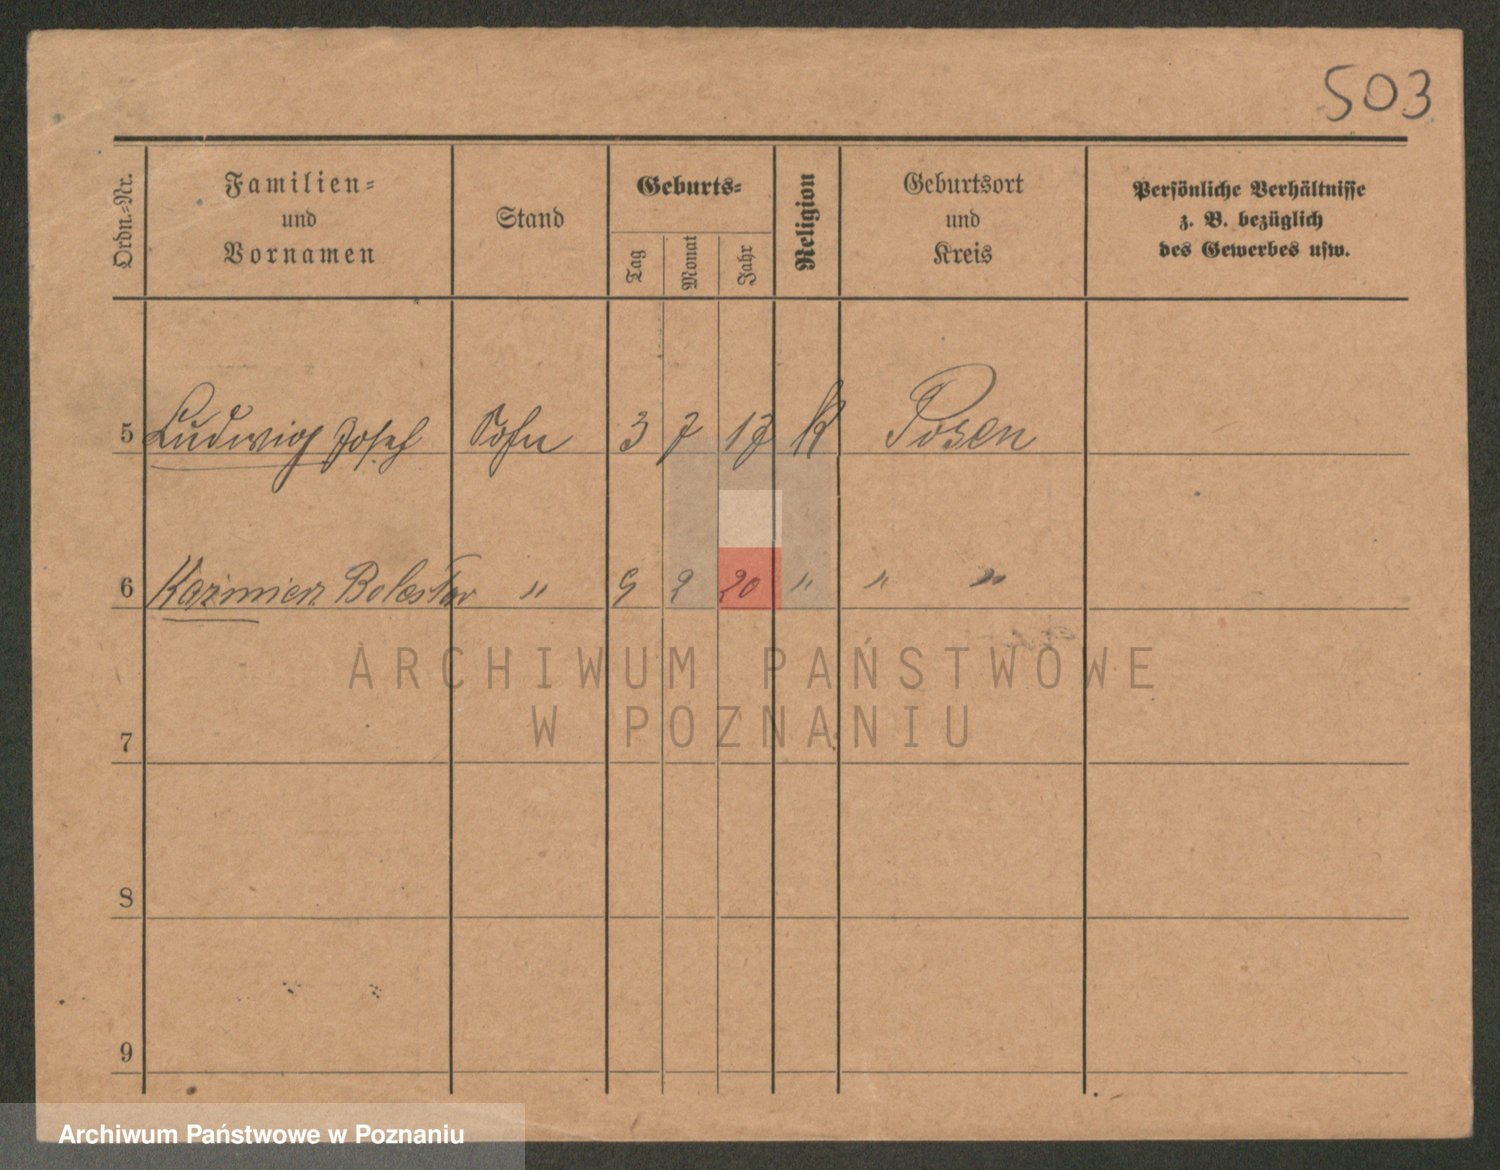 503
Ordn.-Nr.
Familien-
und
Vornamen
Stand
Geburts-
Tag
Monat
Jahr
Religion
Geburtsort
und
Kreis
Persönliche Verhältnisse
z. B. bezüglich
des Gewerbes usw.
5 Ludwig Josef Sohn 3 7 17 K Posen
6 Kazimierz Boleslaw " 9 2 20 " " "
7
8
9
ARCHIWUM PAŃSTWOWE
W POZNANIU
Archiwum Państwowe w Poznaniu